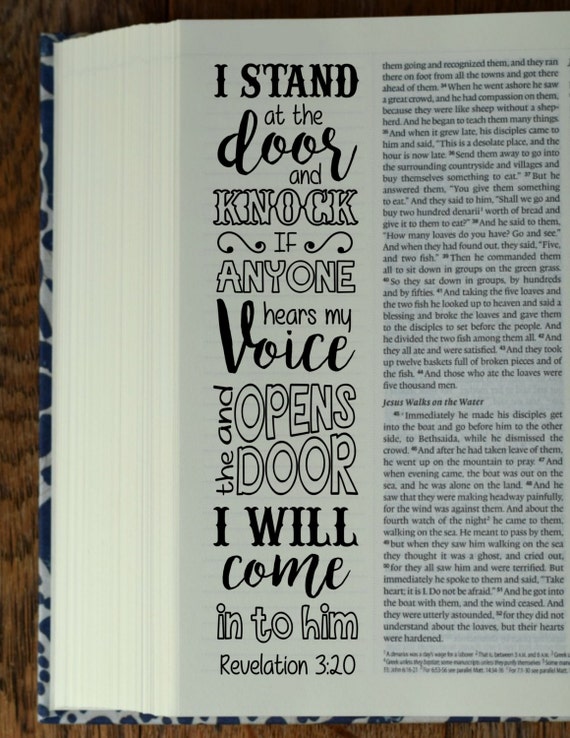 I STAND
at the
door
and
KNOCK
IF
ANYONE
hears my
Voice
and OPENS
the DOOR
I WILL
come
in to him
Revelation 3:20
them going and recognized them, and they ran
there on foot from all the towns and got there
ahead of them. 34 When he went ashore he saw
a great crowd, and he had compassion on them,
because they were like sheep without a shep-
herd. And he began to teach them many things.
35 And when it grew late, his disciples came to
him and said, "This is a desolate place, and the
hour is now late. 36 Send them away to go into
the surrounding countryside and villages and
buy themselves something to eat." 37 But he
answered them, "You give them something
to eat." And they said to him, "Shall we go and
buy two hundred denarii¹ worth of bread and
give it to them to eat?" 38 And he said to them,
"How many loaves do you have? Go and see."
And when they had found out, they said, "Five,
and two fish." 39 Then he commanded them
all to sit down in groups on the green grass.
40 So they sat down in groups, by hundreds
and by fifties. 41 And taking the five loaves and
the two fish he looked up to heaven and said a
blessing and broke the loaves and gave them
to the disciples to set before the people. And
he divided the two fish among them all. 42 And
they all ate and were satisfied. 43 And they took
up twelve baskets full of broken pieces and of
the fish. 44 And those who ate the loaves were
five thousand men.
Jesus Walks on the Water
45 Immediately he made his disciples get
into the boat and go before him to the other
side, to Bethsaida, while he dismissed the
crowd. 46 And after he had taken leave of them,
he went up on the mountain to pray. 47 And
when evening came, the boat was out on the
sea, and he was alone on the land. 48 And he
saw that they were making headway painfully,
for the wind was against them. And about the
fourth watch of the night² he came to them,
walking on the sea. He meant to pass by them,
49 but when they saw him walking on the sea
they thought it was a ghost, and cried out,
50 for they all saw him and were terrified. But
immediately he spoke to them and said, "Take
heart; it is I. Do not be afraid." 51 And he got into
the boat with them, and the wind ceased. And
they were utterly astounded, 52 for they did not
understand about the loaves, but their hearts
were hardened.
¹ A denarius was a day's wage for a laborer ² That is, between 3 A.M. and 6 A.M.